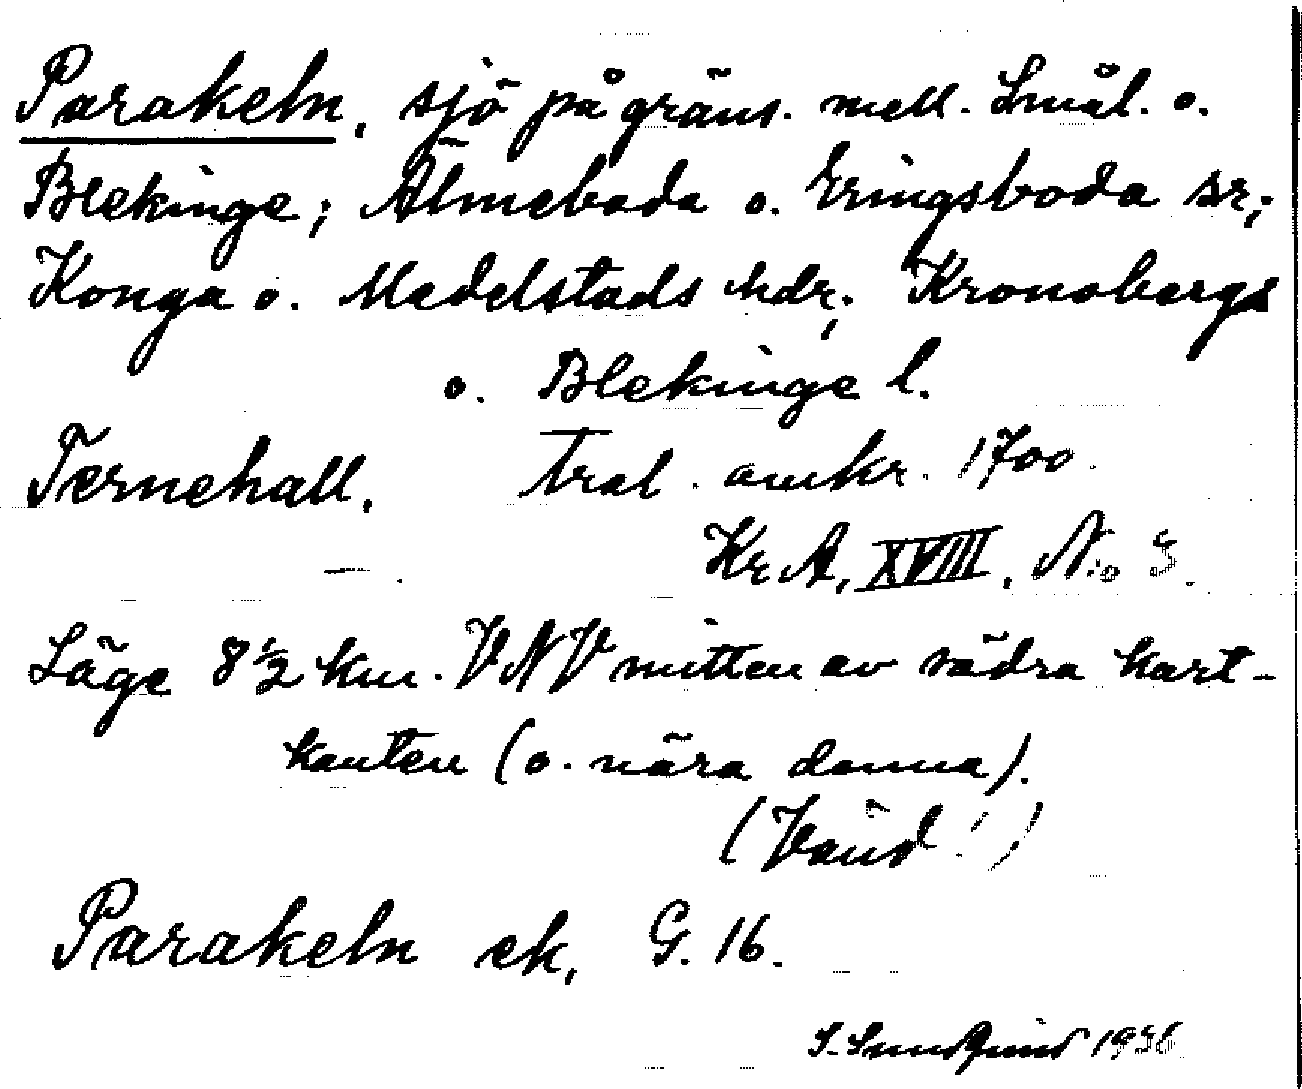 Parakeln, sjö på gräns. mell. Smål. o.
Blekinge; Älmeboda o. Eringsboda sr;
Konga o. Medelstads hdr; Kronobergs
o. Blekinge l.
Ternehall. Tral. omkr. 1700.
Kr.A, XVIII, No 3.
Läge 8 1/2 km. VNV mitten av södra kart-
kanten (o. nära denna).
(Vänd!)
Parakeln ek, G. 16.
1936